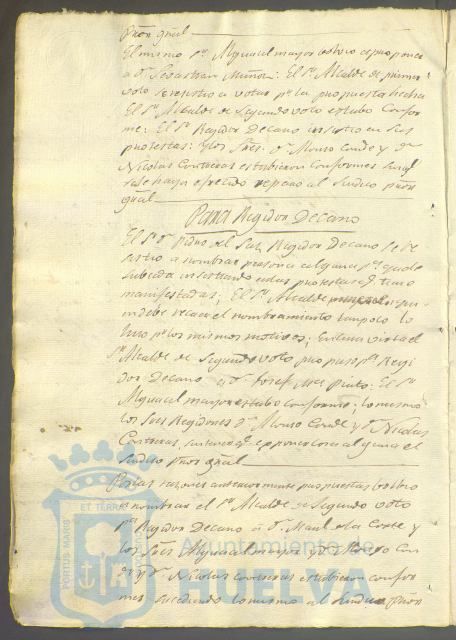 pror gral
El mismo Sr. Alguacil mayor volvio a proponer
a Dn. Sebastian Muñoz: El Sr. Alcalde de primer
voto se resistio a votar pr. la propuesta hecha
El Sr. Alcalde de Segundo voto estubo Confor-
me: El Sr. Regidor Decano insistio en sus
protestas: y los Sres. Dn. Alonso Conde y Dn.
Nicolas Contreras estubieron conformes sin qe
se le haya ofrecido reparo al Sindico pror
gral
Para Regidor Decano
El Sr. Dn. Pedro del Sas, Regidor Decano se de-
sistio a nombrar persona alguna pr.
insistiendo en las protestas qe tiene
manifestadas; El Sr. Alcalde
in debe recaer el nombramiento tampoco lo
hizo pr. los mismos motivos; En cuia virtud el
Sr. Alcalde de Segundo voto propuso pa. Regi-
dor Decano a Dn. Josef Pinto: El Sr.
Alguacil mayor estubo conforme; lo mismo
los Sres Regidores Dn. Alonso Conde y Dn. Nicolas
Contreras, sin tener qe exponer cosa alguna el
Sindico pror gral
Por las razones anteriormente propuestas volvio
a nombrar el Sr. Alcalde de Segundo voto
pa. Regidor Decano a Dn. Manl. de la Corte y
los Sres Alguacil mayor y Dn. Alonso Con-
de y Dn. Nicolas Contreras estubieron confor-
mes, sucediendo lo mismo al Sindico pror
PORTUS MARIS ET TERRAE
Ayuntamiento de
HUELVA